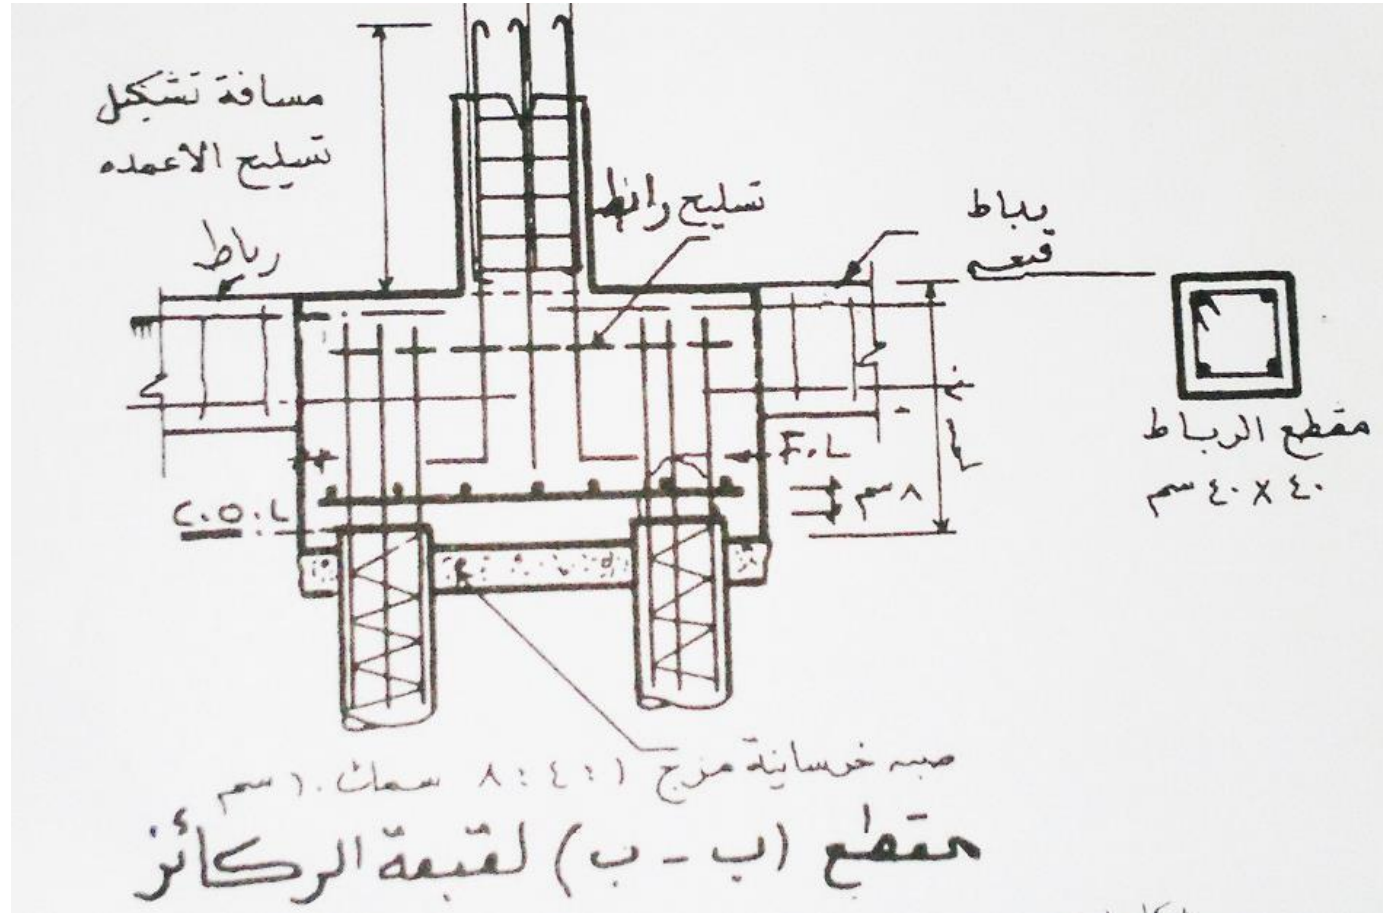 مسافة تشكيل
تسليح الاعمده
رباط
تسليح رابط
رباط
قبعه
F.L
٨ سم
C.O.L
مقطع الرباط
٤٠ X ٤٠ سم
صبه خرسانية مزج ١:٤:٨ سمك ١٠ سم
مقطع (ب - ب) لقبعة الركائز